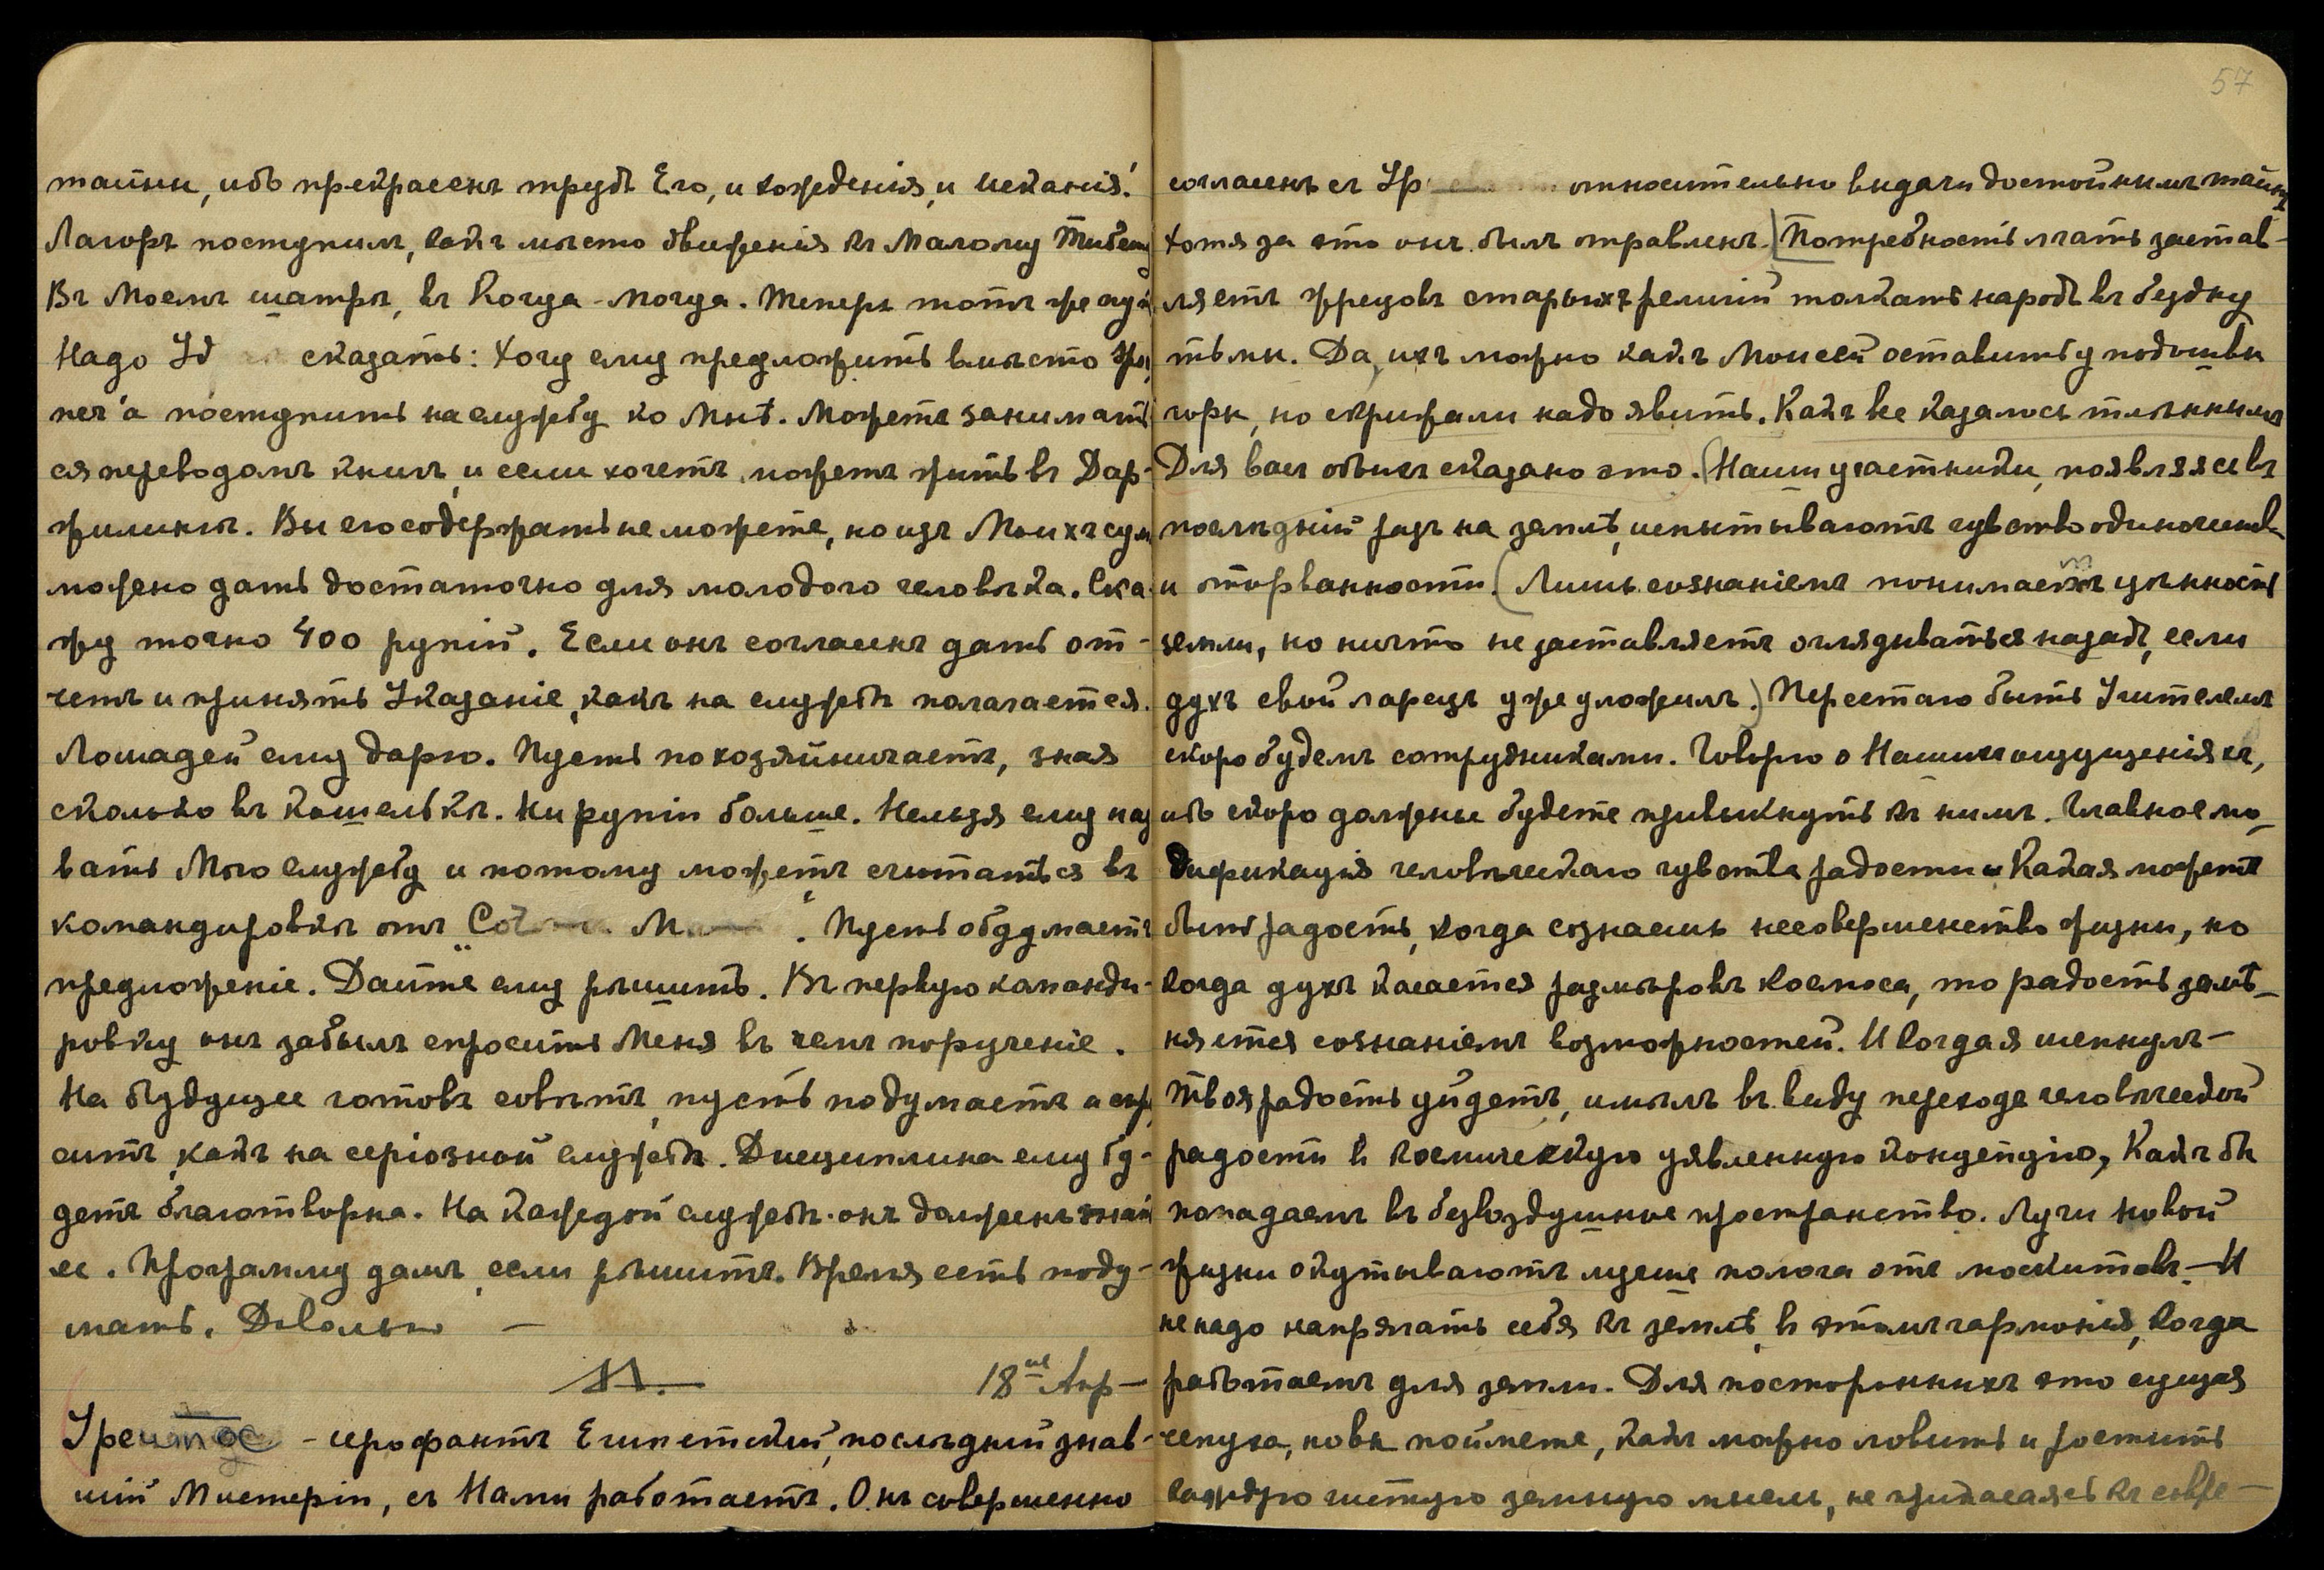 тайны, ибо прекрасенъ трудъ Его, и хожденія, и исканія!
Лагоръ поступилъ, какъ мѣсто движенія къ Малому Тибету
Въ Моемъ шатрѣ, въ Кочуа-Мочуа. Теперь тотъ же
Надо сказать: Хочу ему предложить вмѣсто
поступить на службу ко Мнѣ. Можетъ занимать
ся переводомъ книгъ, и если хочетъ, можетъ жить въ Дар-
жилингѣ. Вы его содержать не можете, но изъ Моихъ сумъ
можно дать достаточно для молодого человѣка. Ска-
жу точно 400 рупій. Если онъ согласенъ дать от-
четъ и принять Указаніе, какъ на службѣ полагается.
Лошадей ему дарю. Пусть похозяйничаетъ, зная
сколько въ кошелькѣ. Ни рупіи больше. Нельзя ему наз
вать Мою службу и потому можетъ считаться въ
командировкѣ отъ . Пусть обдумаетъ
предложеніе. Дайте ему рѣшить. Въ первую команди-
ровку онъ забылъ спросить Меня въ чемъ порученіе.
На будущее готовъ совѣтъ, пусть подумаетъ и спро
ситъ, какъ на серіозной службѣ. Дисциплина ему бу-
детъ благотворна. На каждой службѣ онъ долженъ
ее. Программу дамъ, если рѣшитъ. Время есть поду-
мать. Довольно —
М. 18ое Апр —
іерофантъ Египетскій, послѣдній знав-
шій Мистеріи, съ Нами работаетъ. Онъ совершенно
57
согласенъ съ Ур относительно выдачи достойнымъ тайны
хотя за это онъ былъ отравленъ. (Потребность лгать застав-
ляетъ жрецовъ старыхъ религій толкать народъ въ бездну
тьмы. Да, ихъ можно какъ Моисей оставить у подошвы
горы, но скрижали надо явить. Какъ все казалось тлѣннымъ
Для васъ обоихъ сказано это. (Наши участники, появляясь въ
послѣдній разъ на землѣ, испытываютъ чувство одиночества
и оторванности. (Лишь сознаніемъ понимаетъ цѣнность
земли, но ничто не заставляетъ оглядываться назадъ, если
духъ свой ларецъ уже уложилъ.) Перестаю быть Учителемъ
скоро будемъ сотрудниками. Говорю о Нашихъ ощущеніяхъ,
ибо скоро должны будете привыкнуть къ нимъ. Главное мо-
дификація человѣческаго чувства радости. Какая можетъ
быть радость, когда сознаешь несовершенство жизни, но
когда духъ касается размѣровъ космоса, то радость замѣ-
няется сознаніемъ возможностей. И когда я шепнулъ —
твоя радость уйдетъ, имѣлъ въ виду переходъ человѣческой
радости в космическую уявленную концепцію, Какъ бы
попадаемъ въ безвоздушное пространство. Лучи новой
жизни окутываютъ лучше полога отъ москитовъ. — И
не надо напрягать себя къ землѣ, в этомъ гармонія, когда
работаемъ для земли. Для постороннихъ это сущая
чепуха, но вы поймете, какъ можно ловить и ростить
каждую чистую земную мысль, не прикасаясь къ совре-